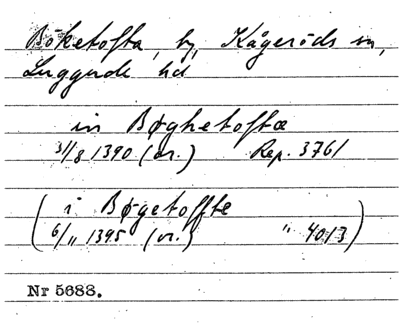 Böketofta, by, Kågeröds sn,
Luggude hd
in Bøghetoftæ
31/8 1390 (or.) Rep. 3761
(i Bøgetoffte
6/11 1395 (or.) " 4013)
Nr 5688.